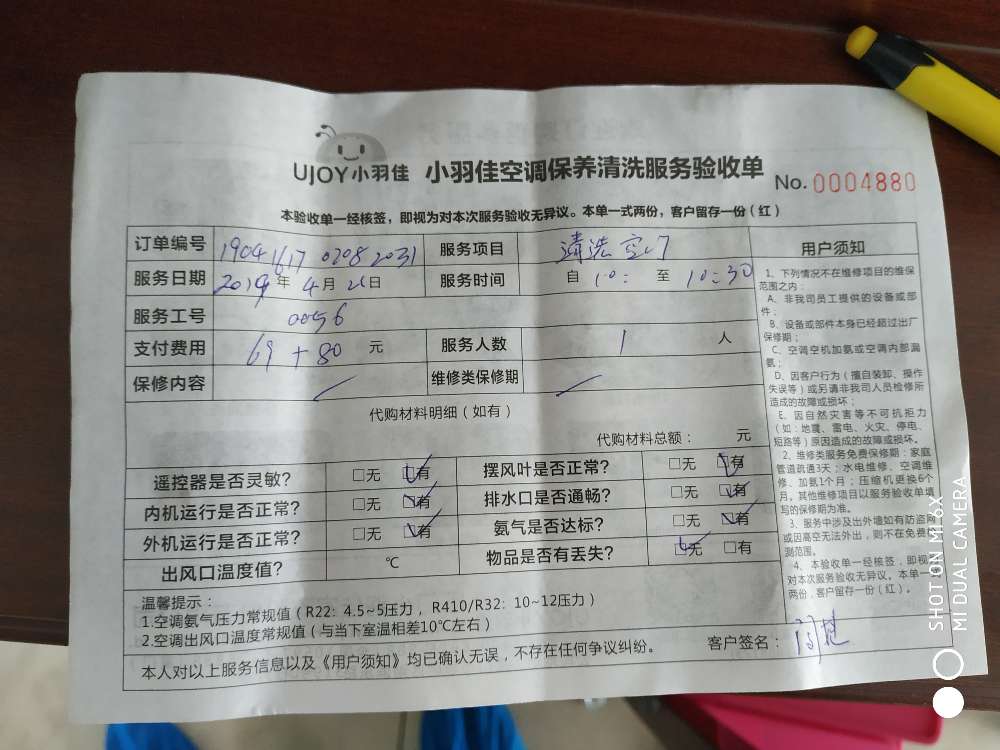 UJOY小羽佳 小羽佳空调保养清洗服务验收单 No. 0004880
本验收单一经核签，即视为对本次服务验收无异议。本单一式两份，客户留存一份（红）
订单编号 19041617 0208 2031 服务项目 清洗空
服务日期 2019年 4月 日 服务时间 自 10: 至 10:30
服务工号 0056
支付费用 69 + 80 元 服务人数 1 人
保修内容 维修类保修期
代购材料明细（如有）
代购材料总额： 元
遥控器是否灵敏? □无 □有 摆风叶是否正常? □无 □有
内机运行是否正常? □无 □有 排水口是否通畅? □无 □有
外机运行是否正常? □无 □有 氨气是否达标? □无 □有
出风口温度值? ℃ 物品是否有丢失? □无 □有
温馨提示：
1.空调氨气压力常规值（R22: 4.5~5压力， R410/R32: 10~12压力）
2.空调出风口温度常规值（与当下室温相差10℃左右）
本人对以上服务信息以及《用户须知》均已确认无误，不存在任何争议纠纷。 客户签名：
用户须知
1、下列情况不在维修项目的维保
范围之内：
A、非我司员工提供的设备或部
件；
B、设备或部件本身已经超过出厂
保修期；
C、空调空机加氨或空调内部漏
氨；
D、因客户行为（擅自装卸、操作
失误等）或另请非我司人员检修所
造成的故障或损坏；
E、因自然灾害等不可抗拒力
（如：地震、雷电、火灾、停电、
短路等）原因造成的故障或损坏。
2、维修类服务免费保修期：家庭
管道疏通3天；水电维修、空调维
修、加氨1个月；压缩机更换6个
月。其他维修项目以服务验收单填
写的保修期为准。
3、服务中涉及出外墙如有防盗网
或因高空无法外出，则不在免费检
测范围。
4、本验收单一经核签，即视
对本次服务验收无异议。本单一
两份，客户留存一份（红）。
SHOT ON MI 6X
MI DUAL CAMERA